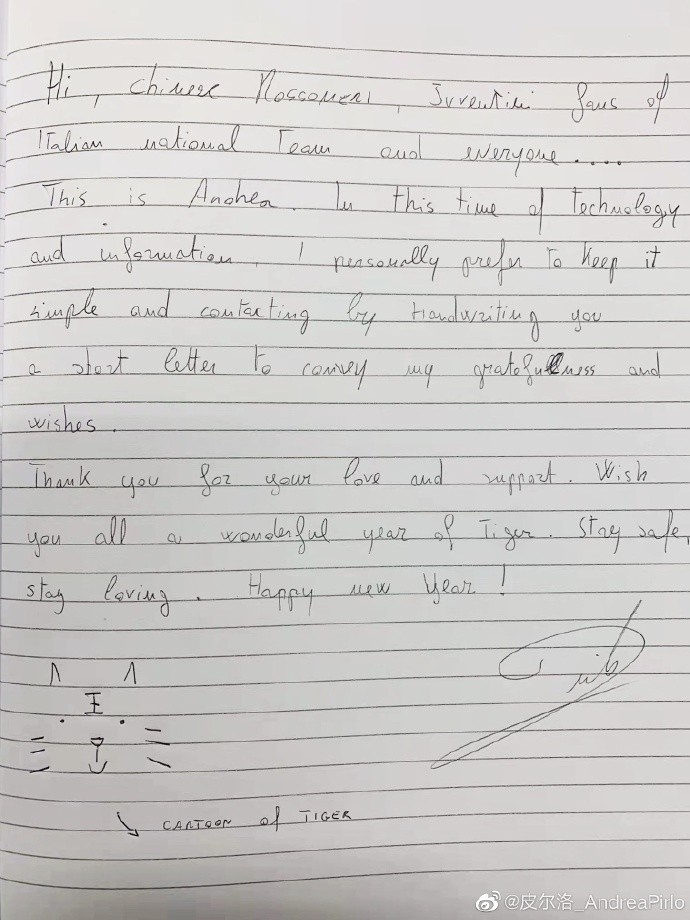 Hi, chinese Rossoneri, Juventini fans of
Italian national Team and everyone....
This is Andrea. In this time of technology
and information, I personally prefer to keep it
simple and contacting by Handwriting you
a short letter to convey my gratefullness and
wishes.
Thank you for your love and support. Wish
you all a wonderful year of Tiger. Stay safe,
stay loving. Happy new Year!
王
CARTOON of TIGER
@皮尔洛_AndreaPirlo